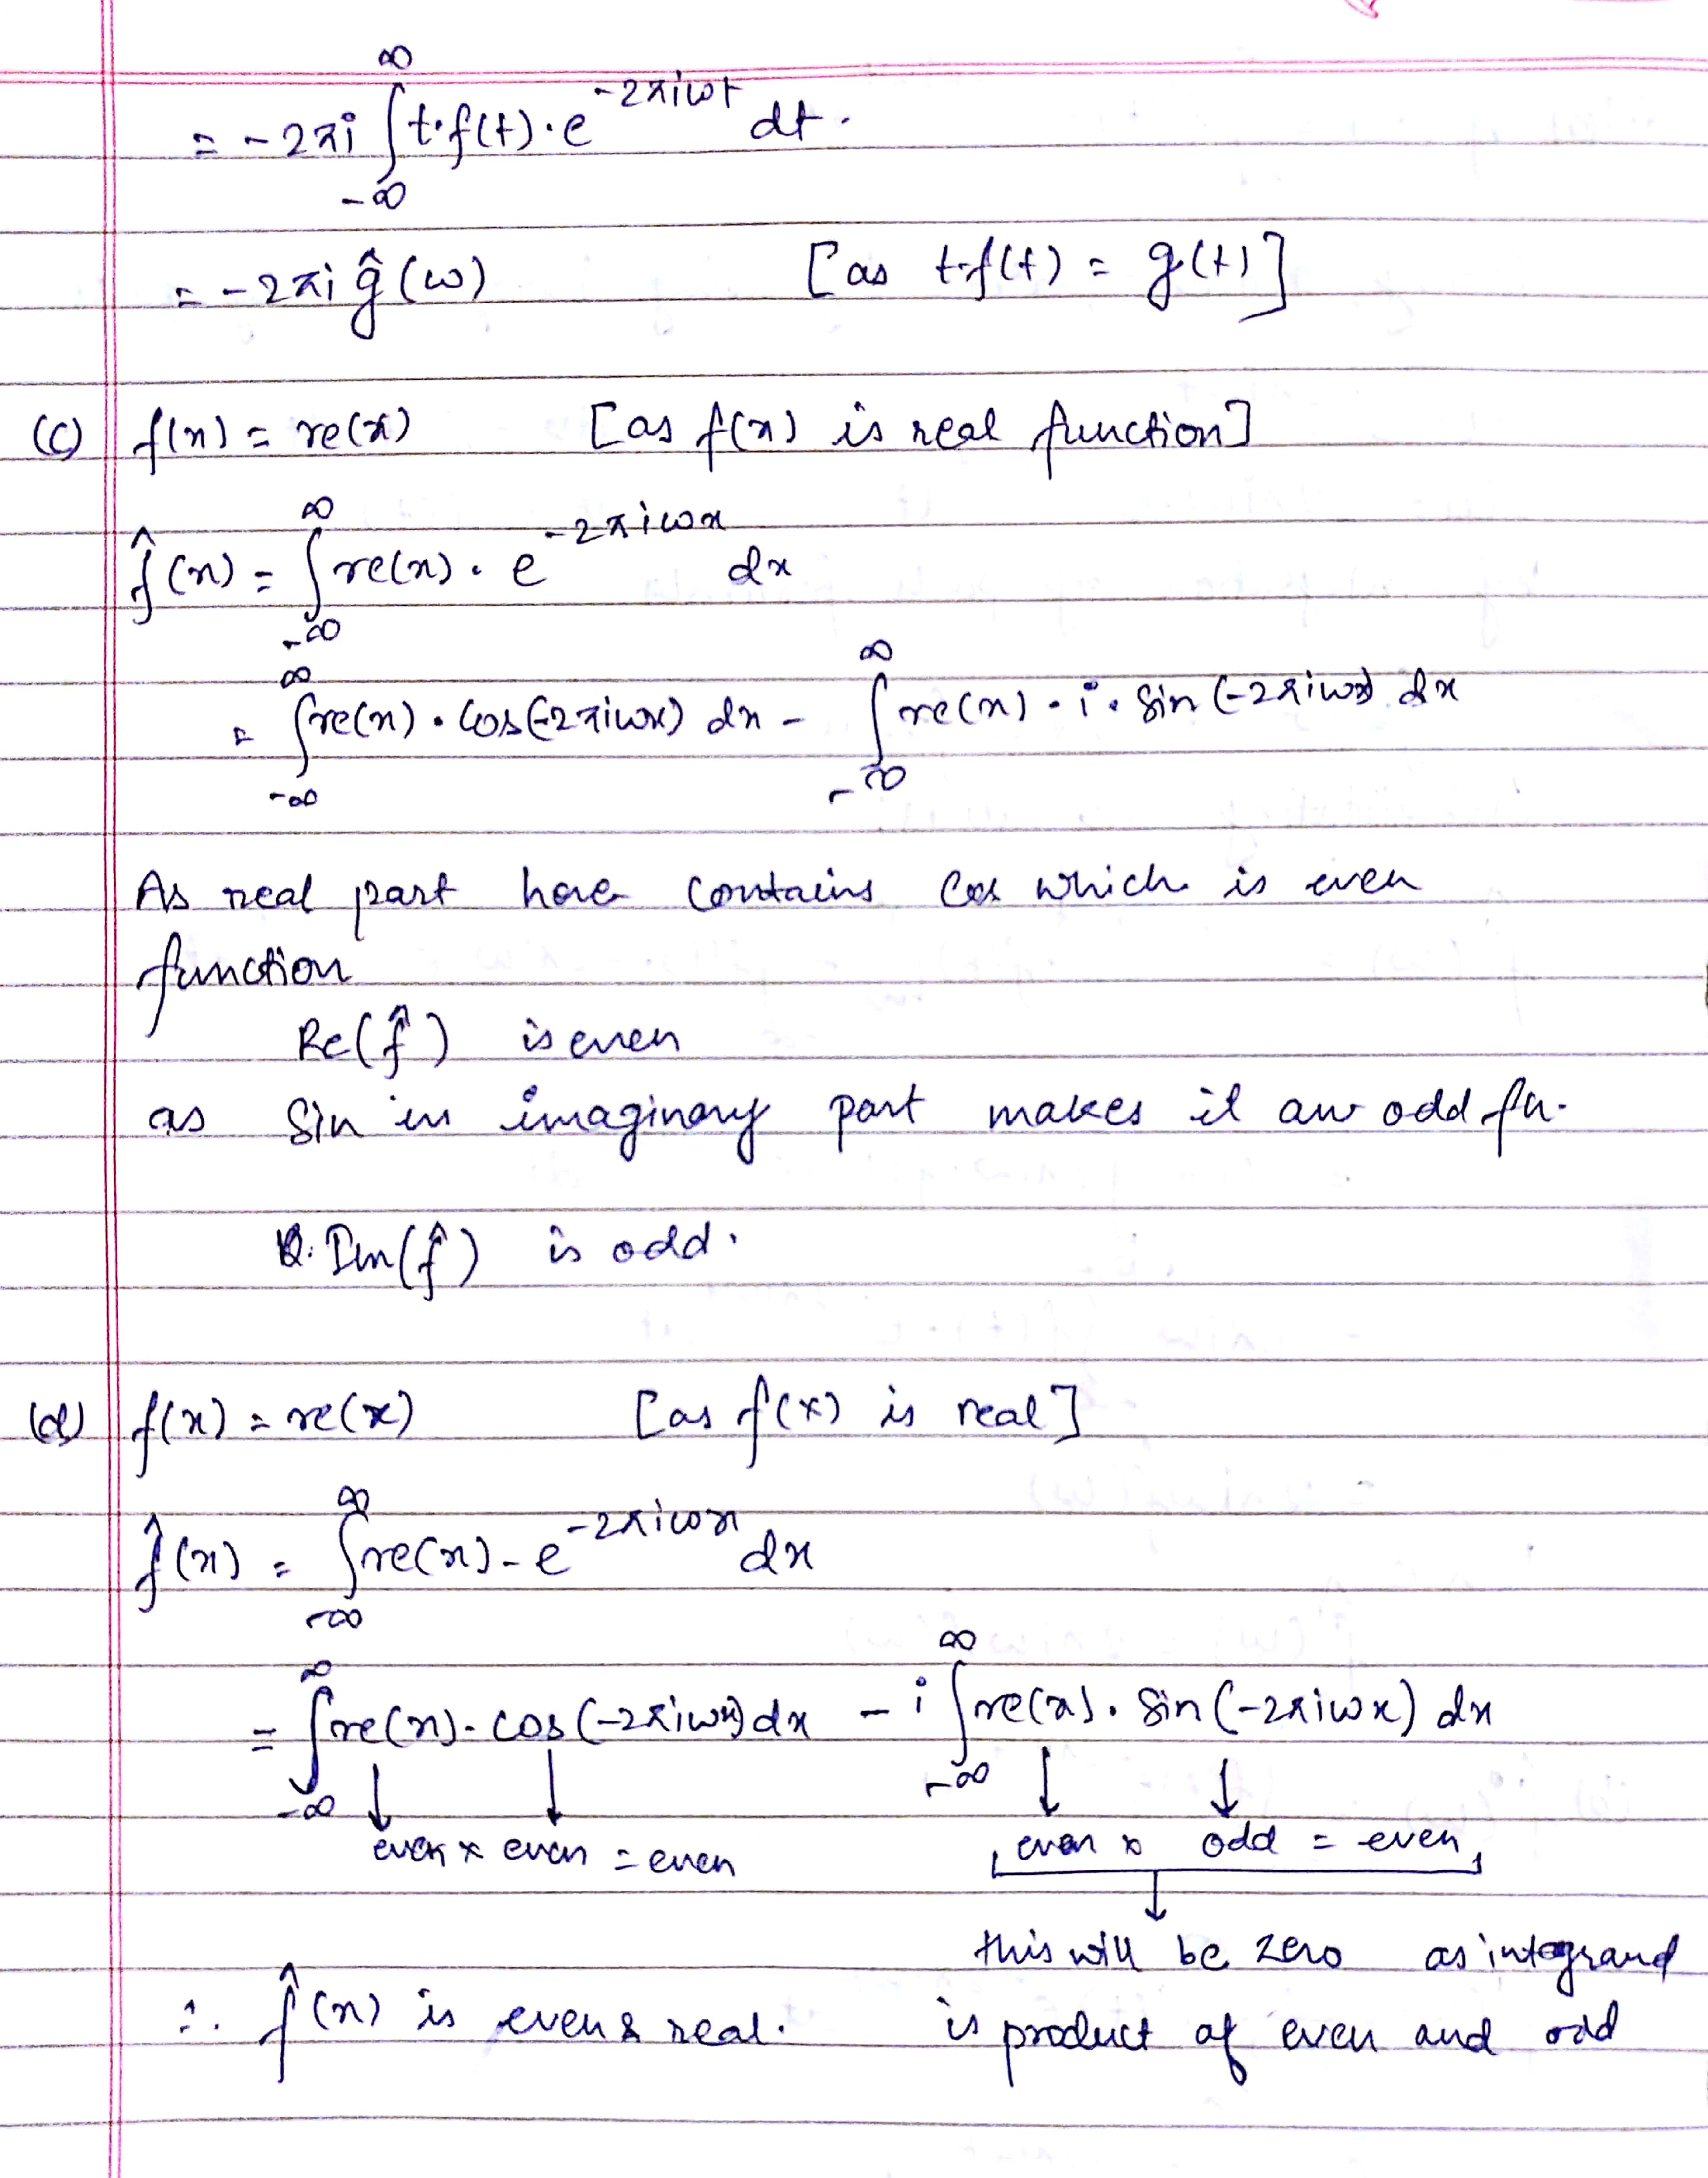 = -2πi ∫_{-∞}^{∞} t·f(t)·e^{-2πiωt} dt.
= -2πi ĝ(ω) [as t·f(t) = g(t)]
(c) f(x) = re(x) [as f(x) is real function]
f̂(x) = ∫_{-∞}^{∞} re(x)·e^{-2πiωx} dx
= ∫_{-∞}^{∞} re(x)·cos(-2πiωx) dx - ∫_{-∞}^{∞} re(x)·i·sin(-2πiωx) dx
As real part here contains cos which is even
function
Re(f̂) is even
as sin in imaginary part makes it an odd fn.
Im(f̂) is odd.
(d) f(x) = re(x) [as f(x) is real]
f̂(x) = ∫_{-∞}^{∞} re(x)-e^{-2πiωx} dx
= ∫_{-∞}^{∞} re(x)·cos(-2πiωx) dx - i ∫_{-∞}^{∞} re(x)·sin(-2πiωx) dx
↓ ↓ ↓ ↓
even × even = even even × odd = even
↓
this will be zero as integrand
∴ f̂(x) is even & real. is product of even and odd